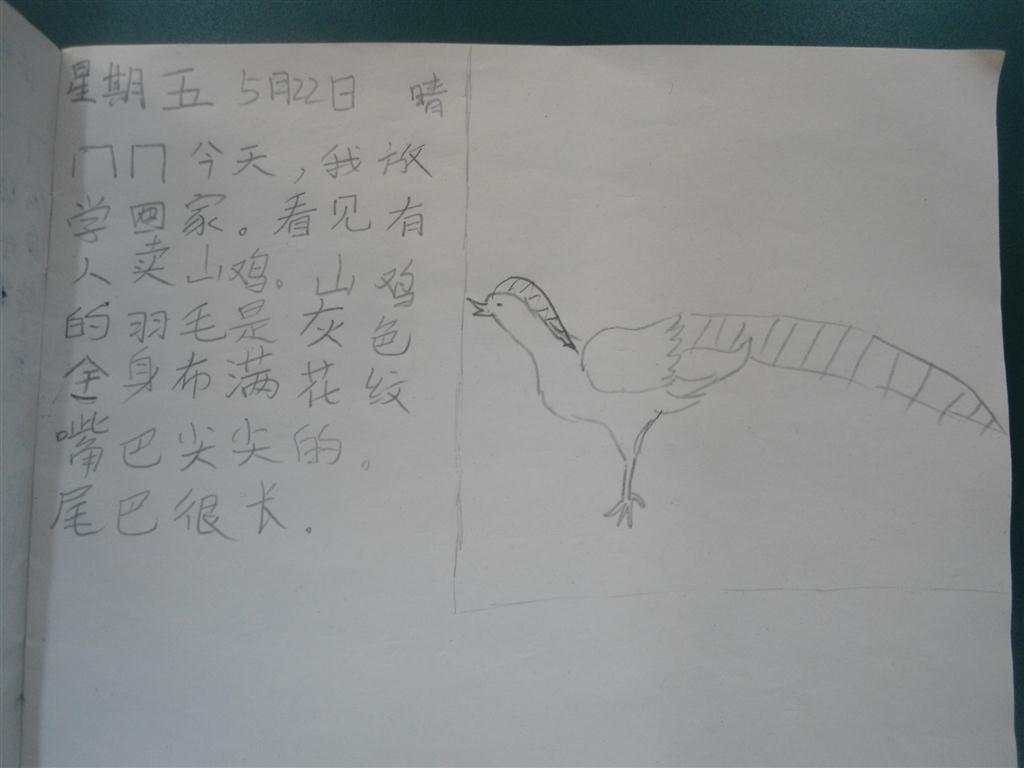 星期五 5月22日 晴
冂冂今天,我放
学回家。看见有
人卖山鸡。山鸡
的羽毛是灰色
全身布满花纹
嘴巴尖尖的。
尾巴很长.